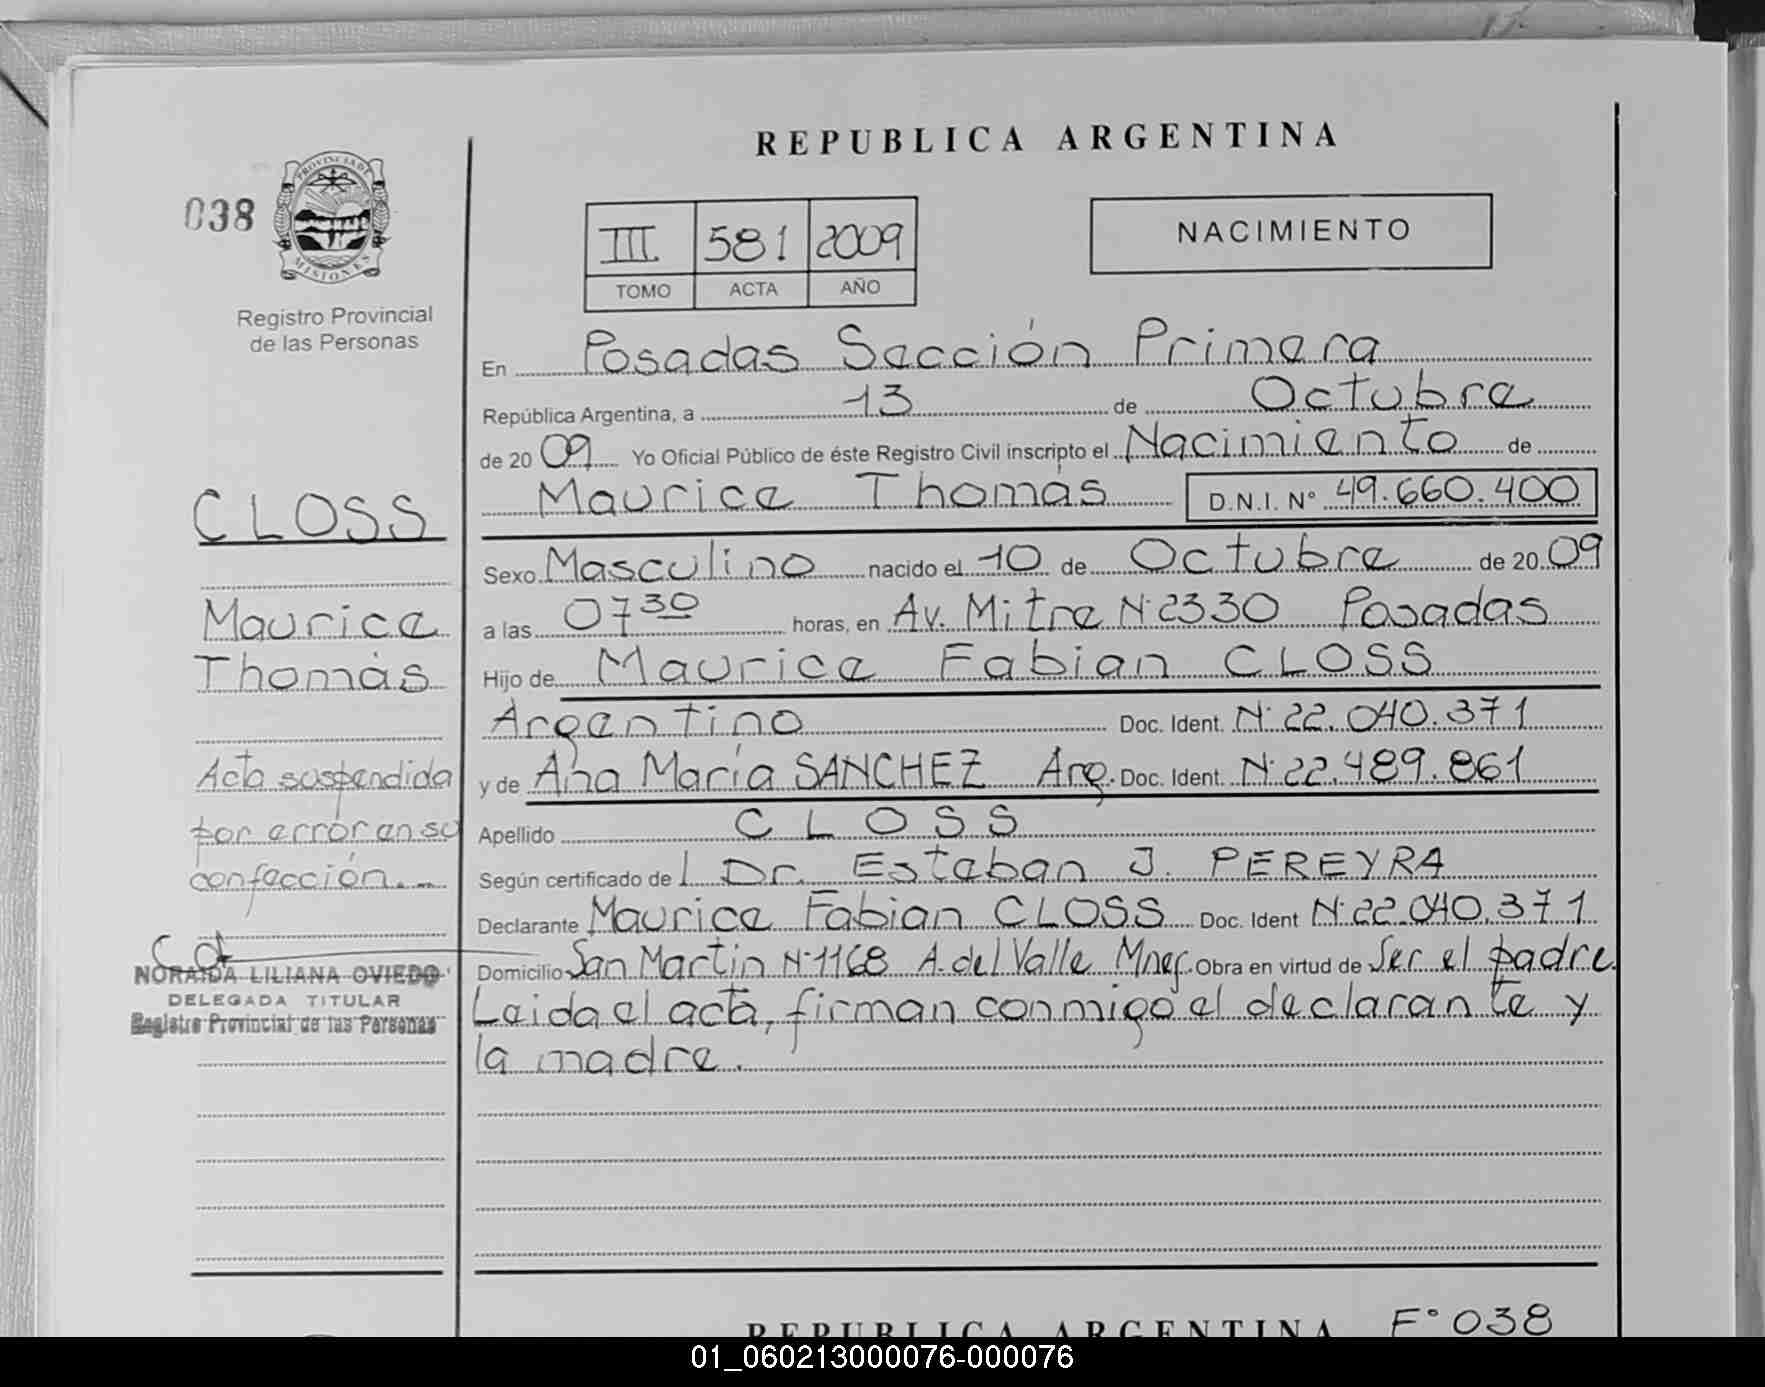 REPUBLICA ARGENTINA
038
PROVINCIA DE
MISIONES
Registro Provincial
de las Personas
III 581 2009
TOMO ACTA AÑO
NACIMIENTO
En Posadas Sección Primera
República Argentina, a 13 de Octubre
de 2009 Yo Oficial Público de éste Registro Civil inscripto el Nacimiento de
Maurice Thomás D.N.I. N° 49.660.400
Sexo Masculino nacido el 10 de Octubre de 2009
a las 07 30 horas, en Av. Mitre N° 2330 Posadas
Hijo de Maurice Fabian CLOSS
Argentino Doc. Ident. N° 22.040.371
y de Ana María SANCHEZ Arg. Doc. Ident. N° 22.489.861
Apellido CLOSS
Según certificado del Dr. Esteban J. PEREYRA
Declarante Maurice Fabian CLOSS Doc. Ident N° 22.040.371
Domicilio San Martin N° 1168 A. del Valle Mnes. Obra en virtud de Ser el padre.
Leida el acta, firman conmigo el declarante y
la madre.
CLOSS
Maurice
Thomás
Acta suspendida
por error en su
confección.
NORAIDA LILIANA OVIEDO
DELEGADA TITULAR
Registro Provincial de las Personas
REPUBLICA ARGENTINA F° 038
01_060213000076-000076